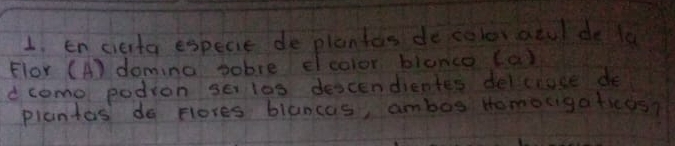 1. En cierta especie de plantas de color azul de la
Flor (A) domina sobre el color blanco (a)
¿como podron ser los descendientes del cruce de
plantas de Flores blancas, ambos Homocigaticos?